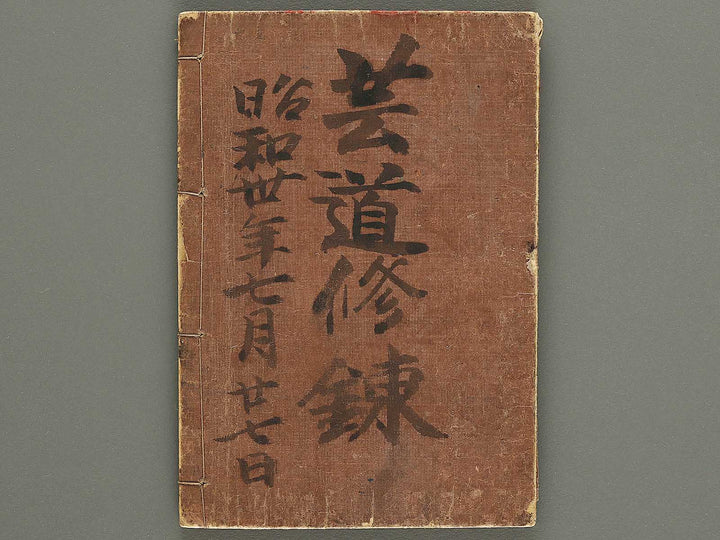 芸道修錬
昭和卅年七月廿七日